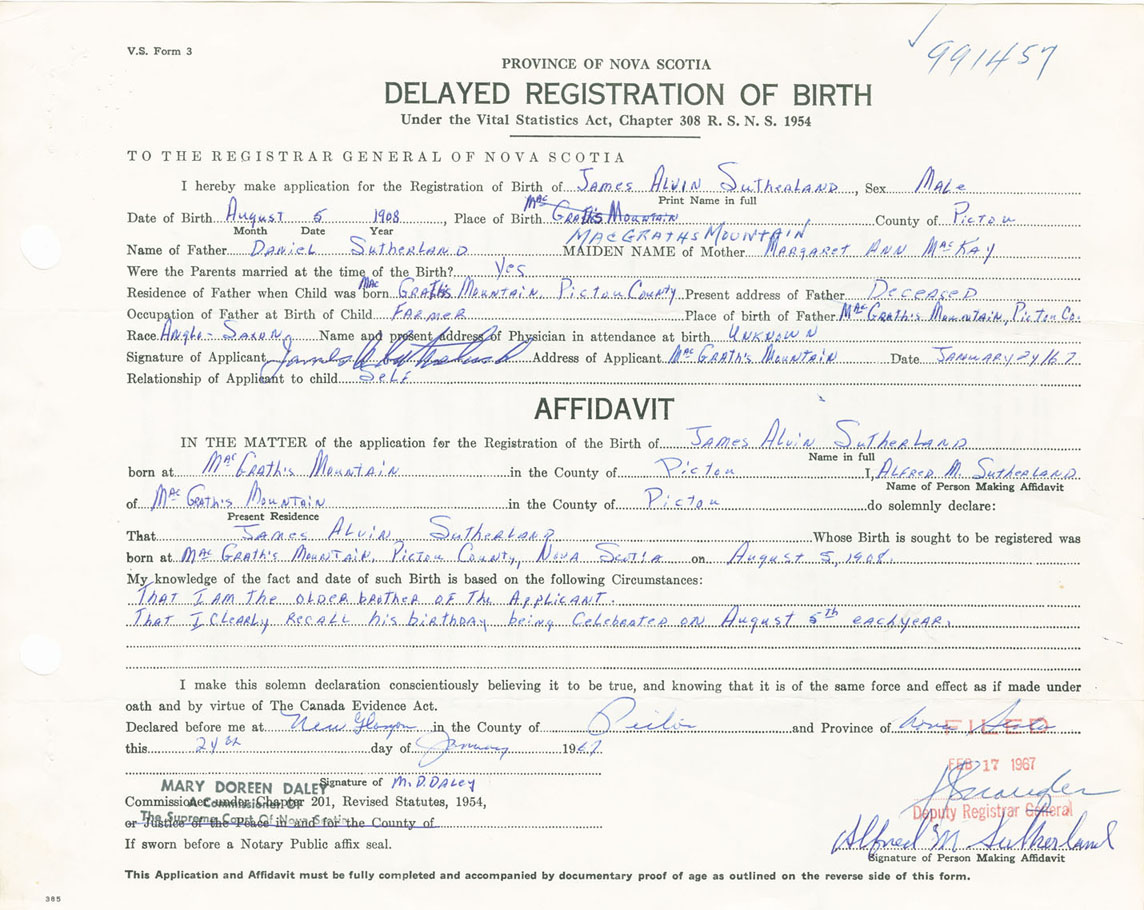 V.S. Form 3
991457
PROVINCE OF NOVA SCOTIA
DELAYED REGISTRATION OF BIRTH
Under the Vital Statistics Act, Chapter 308 R. S. N. S. 1954
TO THE REGISTRAR GENERAL OF NOVA SCOTIA
I hereby make application for the Registration of Birth of James Alvin Sutherland, Sex Male
Print Name in full
Date of Birth August 5 1908, Place of Birth MacGrath's Mountain County of Pictou
Month Date Year
MacGraths Mountain
Name of Father Daniel Sutherland MAIDEN NAME of Mother Margaret Ann MacKay
Were the Parents married at the time of the Birth? Yes
Residence of Father when Child was born MacGrath's Mountain, Pictou County Present address of Father Deceased
Occupation of Father at Birth of Child Farmer Place of birth of Father MacGrath's Mountain, Pictou Co.
Race Anglo-Saxon Name and present address of Physician in attendance at birth Unknown
Signature of Applicant James A Sutherland Address of Applicant MacGrath's Mountain Date January 24/67
Relationship of Applicant to child Self
AFFIDAVIT
IN THE MATTER of the application for the Registration of the Birth of James Alvin Sutherland
Name in full
born at MacGrath's Mountain in the County of Pictou I, Alfred M. Sutherland
Name of Person Making Affidavit
of MacGrath's Mountain in the County of Pictou do solemnly declare:
Present Residence
That James Alvin Sutherland Whose Birth is sought to be registered was
born at MacGrath's Mountain, Pictou County, Nova Scotia on August 5, 1908.
My knowledge of the fact and date of such Birth is based on the following Circumstances:
That I am the older brother of the Applicant.
That I clearly recall his birthday being celebrated on August 5th each year.
I make this solemn declaration conscientiously believing it to be true, and knowing that it is of the same force and effect as if made under
oath and by virtue of The Canada Evidence Act.
Declared before me at New Glasgow in the County of Pictou and Province of Nova Scotia
FILED
this 24th day of January 1967
FEB 17 1967
Signature of M.D. Daley
MARY DOREEN DALEY
A Commissioner Of
The Supreme Court Of Nova Scotia
Commissioner under Chapter 201, Revised Statutes, 1954,
Deputy Registrar General
or Justice of the Peace in and for the County of
Alfred M Sutherland
If sworn before a Notary Public affix seal.
Signature of Person Making Affidavit
This Application and Affidavit must be fully completed and accompanied by documentary proof of age as outlined on the reverse side of this form.
385